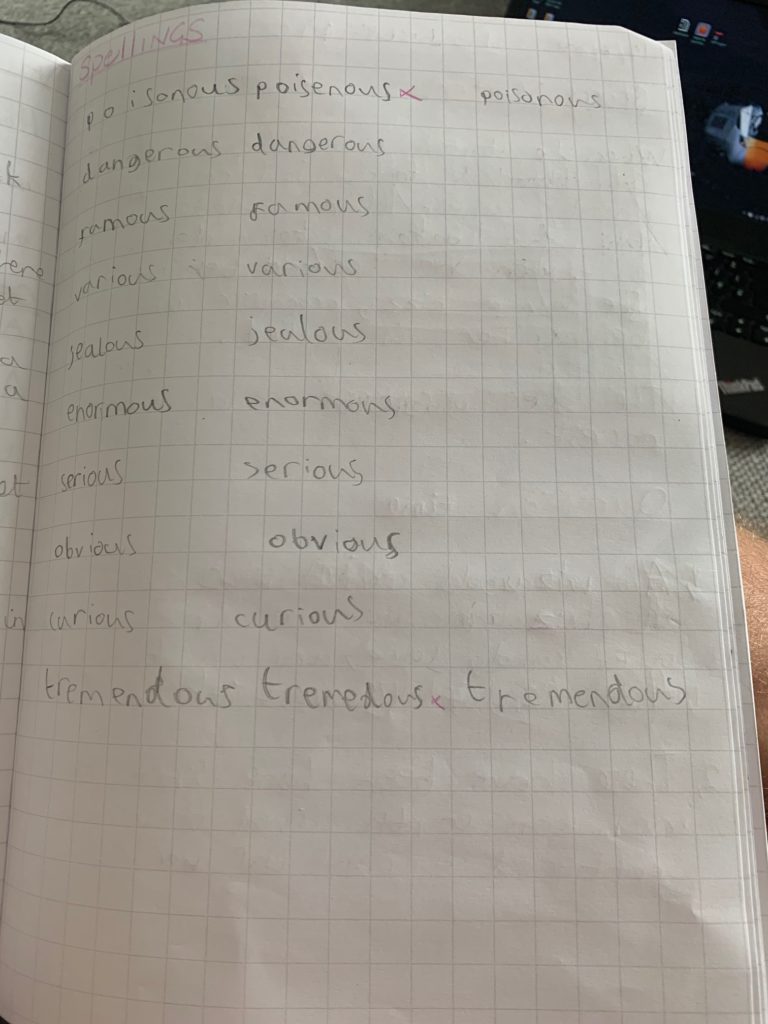 SpellINGS
poisonous poisenous x poisonous
dangerous dangerous
famous famous
various various
jealous jealous
enormous enormous
serious serious
obvious obvious
curious curious
tremendous tremedous x tremendous
k
et
a
a
at
in